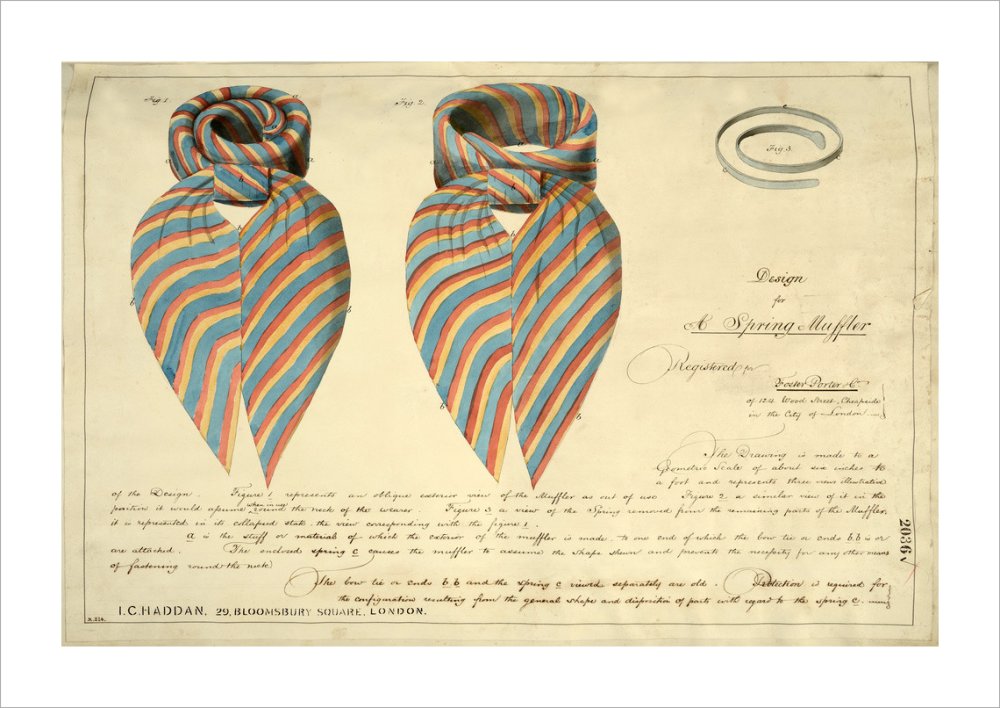 Fig. 1.
a
a
a
b
b
b
b
Fig. 2.
a
a
b
b
b
b
Fig. 3.
c
c
c
Design
for
A Spring Muffler
Registered for
Foster Porter & Co
of 124 Wood Street, Cheapside
in the City of London
The Drawing is made to a
Geometric Scale of about six inches to
a foot and represents three views illustrative
of the Design. Figure 1 represents an oblique exterior view of the Muffler as out of use. Figure 2 a similar view of it in the
position it would assume when in use round the neck of the wearer. Figure 3 a view of the Spring removed from the remaining parts of the Muffler,
it is represented in its collapsed state, the view corresponding with the figure 1.
a is the stuff or material of which the exterior of the muffler is made, to one end of which the bow tie or ends b.b is or
are attached. The enclosed spring c causes the muffler to assume the shape shewn and prevents the necessity for any other means
of fastening round the neck.
The bow tie or ends b.b and the spring c viewed separately are old. Protection is required for
the configuration resulting from the general shape and disposition of parts with regard to the spring c.
I.C. HADDAN, 29, BLOOMSBURY SQUARE, LONDON.
2036